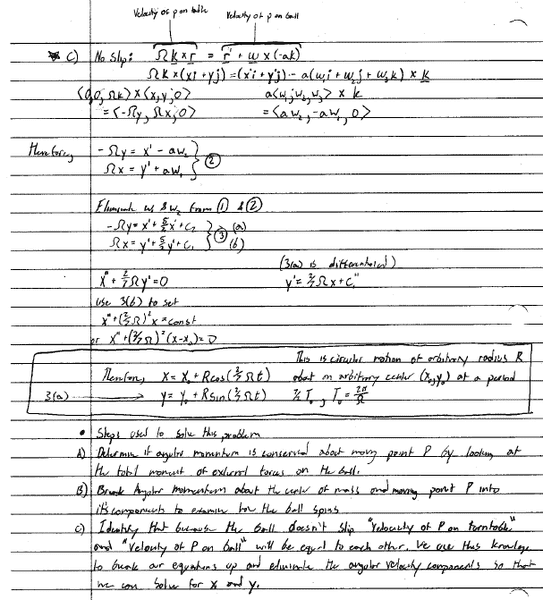 Velocity of p on table    Velocity of p on ball
* C) No Slip: Ω k × r = r' + ω × (-ak)
Ω k × (xi + yj) = (x'i + y'j) - a(ω₁i + ω₂j + ω₃k) × k
<0,0,Ωk> × <x,y,0>    a<ω₁,ω₂,ω₃> × k
= <-Ωy, Ωx, 0>    = <aω₂, -aω₁, 0>
Therefore, -Ωy = x' - aω₂
Ωx = y' + aω₁ } ②
Eliminate ω₁ & ω₂ from ① & ②
-Ωy = x' + 5/2 x' + c₂ (a)
Ωx = y' + 5/2 y' + c₁ } ③ (b)
(3(a) is differentiated)
x'' + 2/7 Ωy' = 0    y' = 2/7 Ωx + c₁''
use 3(b) to get
x'' + (2/7 Ω)² x = const
or x'' + (2/7 Ω)² (x - x₀) = 0
This is circular motion of arbitrary radius R
Therefore, x = x₀ + R cos(2/7 Ωt)    about an arbitrary center (x₀, y₀) at a period
3(a) → y = y₀ + R sin(2/7 Ωt)    7/2 T₀, T₀ = 2π/Ω
• Steps used to solve this problem
A) Determine if angular momentum is conserved about moving point P by looking at
the total moment of external forces on the ball.
B) Break Angular momentum about the center of mass and moving point P into
its components to examine how the ball spins
C) Identify that because the ball doesn't slip "Velocity of P on turntable"
and "Velocity of P on ball" will be equal to each other. We use this knowledge
to break our equations up and eliminate the angular velocity components so that
we can solve for x and y.